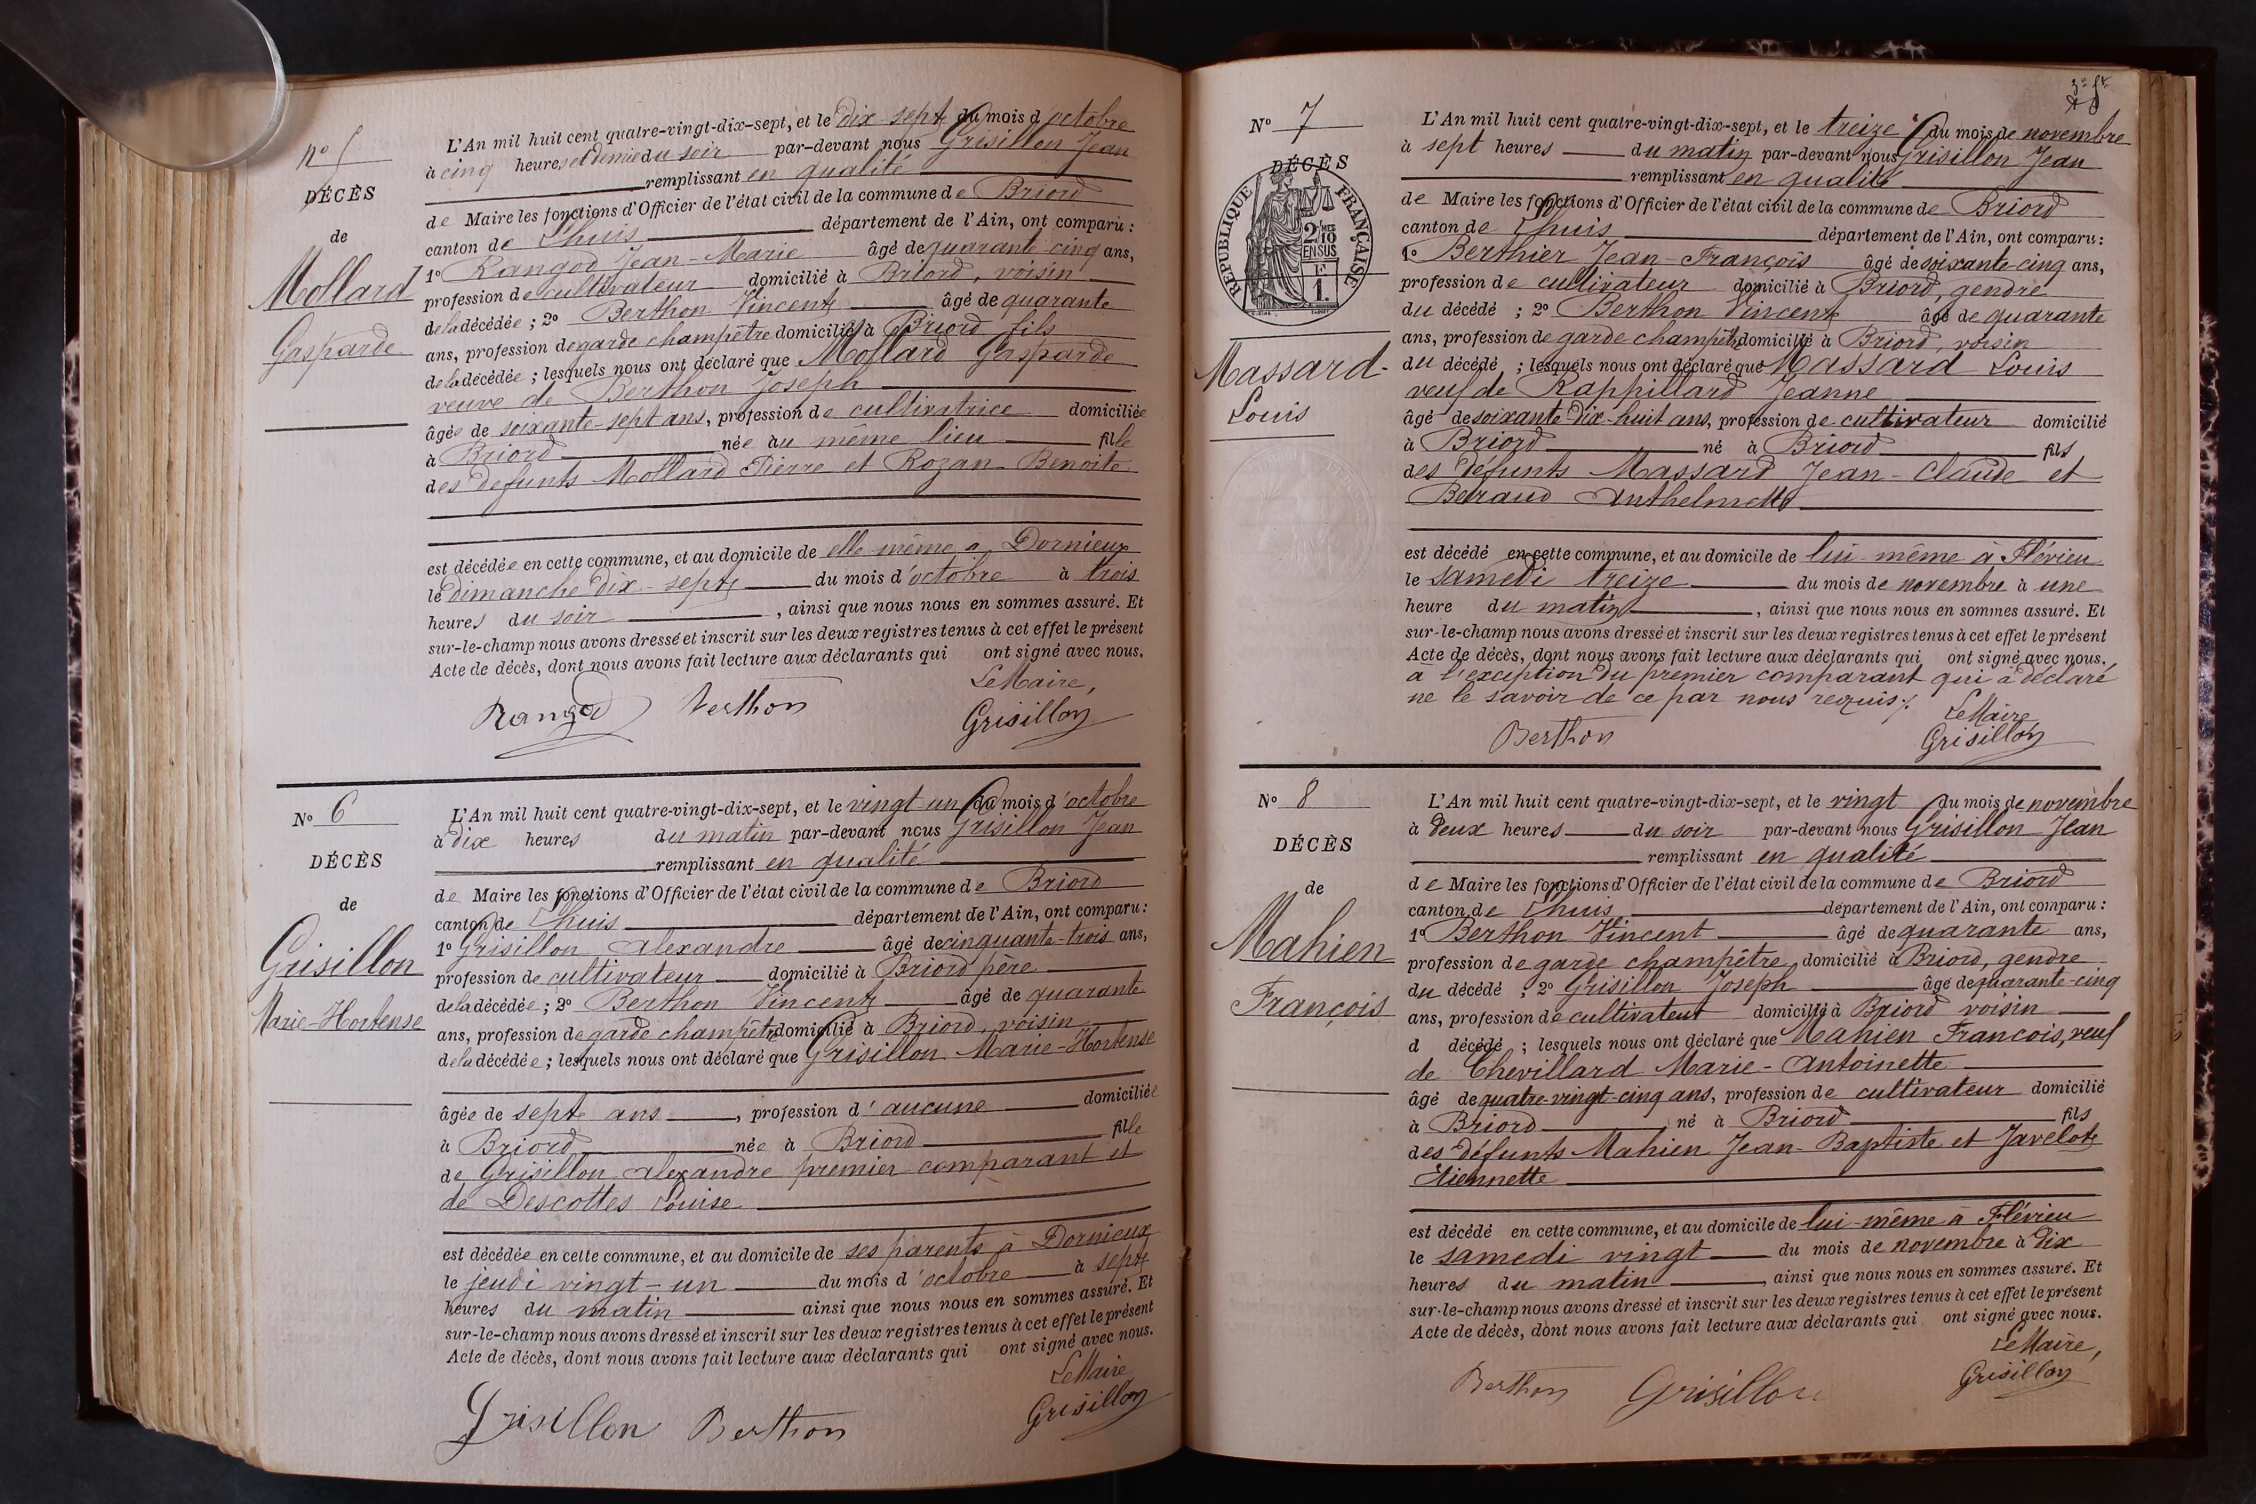 N° 5
DÉCÈS
de
Mollard
Gasparde
L'An mil huit cent quatre-vingt-dix-sept, et le dix sept du mois d'octobre
à cinq heures et demie du soir par-devant nous Grisillon Jean
remplissant en qualité
de Maire les fonctions d'Officier de l'état civil de la commune de Briord
canton de Lhuis département de l'Ain, ont comparu :
1° Rangod Jean-Marie âgé de quarante cinq ans,
profession de cultivateur domicilié à Briord, voisin
de la décédée ; 2° Berthon Vincent âgé de quarante
ans, profession de garde champêtre domicilié à Briord fils
de la décédée ; lesquels nous ont déclaré que Mollard Gasparde
veuve de Berthon Joseph
âgée de soixante-sept ans, profession de cultivatrice domiciliée
à Briord née au même lieu fille
des défunts Mollard Pierre et Rozan Benoite
est décédée en cette commune, et au domicile de elle même à Dornieux
le dimanche dix-sept du mois d'octobre à trois
heures du soir, ainsi que nous nous en sommes assuré. Et
sur-le-champ nous avons dressé et inscrit sur les deux registres tenus à cet effet le présent
Acte de décès, dont nous avons fait lecture aux déclarants qui ont signé avec nous.
Le Maire,
Rangod Berthon Grisillon
N° 6
DÉCÈS
de
Grisillon
Marie-Hortense
L'An mil huit cent quatre-vingt-dix-sept, et le vingt un du mois d'octobre
à dix heures du matin par-devant nous Grisillon Jean
remplissant en qualité
de Maire les fonctions d'Officier de l'état civil de la commune de Briord
canton de Lhuis département de l'Ain, ont comparu :
1° Grisillon Alexandre âgé de cinquante-trois ans,
profession de cultivateur domicilié à Briord père
de la décédée ; 2° Berthon Vincent âgé de quarante
ans, profession de garde champêtre domicilié à Briord, voisin
de la décédée ; lesquels nous ont déclaré que Grisillon Marie-Hortense
âgée de sept ans, profession d'aucune domiciliée
à Briord née à Briord fille
de Grisillon Alexandre premier comparant et
de Descottes Louise
est décédée en cette commune, et au domicile de ses parents à Dornieux
le jeudi vingt-un du mois d'octobre à sept
heures du matin ainsi que nous nous en sommes assuré. Et
sur-le-champ nous avons dressé et inscrit sur les deux registres tenus à cet effet le présent
Acte de décès, dont nous avons fait lecture aux déclarants qui ont signé avec nous.
Le Maire
Grisillon Berthon Grisillon
N° 7
DÉCÈS
RÉPUBLIQUE FRANÇAISE
2/10
EN SUS
F
1.
Massard
Louis
L'An mil huit cent quatre-vingt-dix-sept, et le treize du mois de novembre
à sept heures du matin par-devant nous Grisillon Jean
remplissant en qualité
de Maire les fonctions d'Officier de l'état civil de la commune de Briord
canton de Lhuis département de l'Ain, ont comparu :
1° Berthier Jean-François âgé de soixante-cinq ans,
profession de cultivateur domicilié à Briord, gendre
du décédé ; 2° Berthon Vincent âgé de quarante
ans, profession de garde champêtre domicilié à Briord, voisin
du décédé ; lesquels nous ont déclaré que Massard Louis
veuf de Rappillard Jeanne
âgé de soixante dix-huit ans, profession de cultivateur domicilié
à Briord né à Briord fils
des défunts Massard Jean-Claude et
Beraud Anthelmette
est décédé en cette commune, et au domicile de lui-même à Flévieu
le samedi treize du mois de novembre à une
heure du matin, ainsi que nous nous en sommes assuré. Et
sur-le-champ nous avons dressé et inscrit sur les deux registres tenus à cet effet le présent
Acte de décès, dont nous avons fait lecture aux déclarants qui ont signé avec nous.
à l'exception du premier comparant qui a déclaré
ne le savoir de ce par nous requis./.
Le Maire
Berthon Grisillon
N° 8
DÉCÈS
de
Mahien
François
L'An mil huit cent quatre-vingt-dix-sept, et le vingt du mois de novembre
à deux heures du soir par-devant nous Grisillon Jean
remplissant en qualité
de Maire les fonctions d'Officier de l'état civil de la commune de Briord
canton de Lhuis département de l'Ain, ont comparu :
1° Berthon Vincent âgé de quarante ans,
profession de garde champêtre domicilié à Briord, gendre
du décédé ; 2° Grisillon Joseph âgé de quarante-cinq
ans, profession de cultivateur domicilié à Briord voisin
d décédé ; lesquels nous ont déclaré que Mahien François, veuf
de Chevillard Marie-Antoinette
âgé de quatre-vingt-cinq ans, profession de cultivateur domicilié
à Briord né à Briord fils
des défunts Mahien Jean-Baptiste et Javelot
Etiennette
est décédé en cette commune, et au domicile de lui-même à Flévieu
le samedi vingt du mois de novembre à dix
heures du matin, ainsi que nous nous en sommes assuré. Et
sur-le-champ nous avons dressé et inscrit sur les deux registres tenus à cet effet le présent
Acte de décès, dont nous avons fait lecture aux déclarants qui ont signé avec nous.
Le Maire,
Berthon Grisillon Grisillon